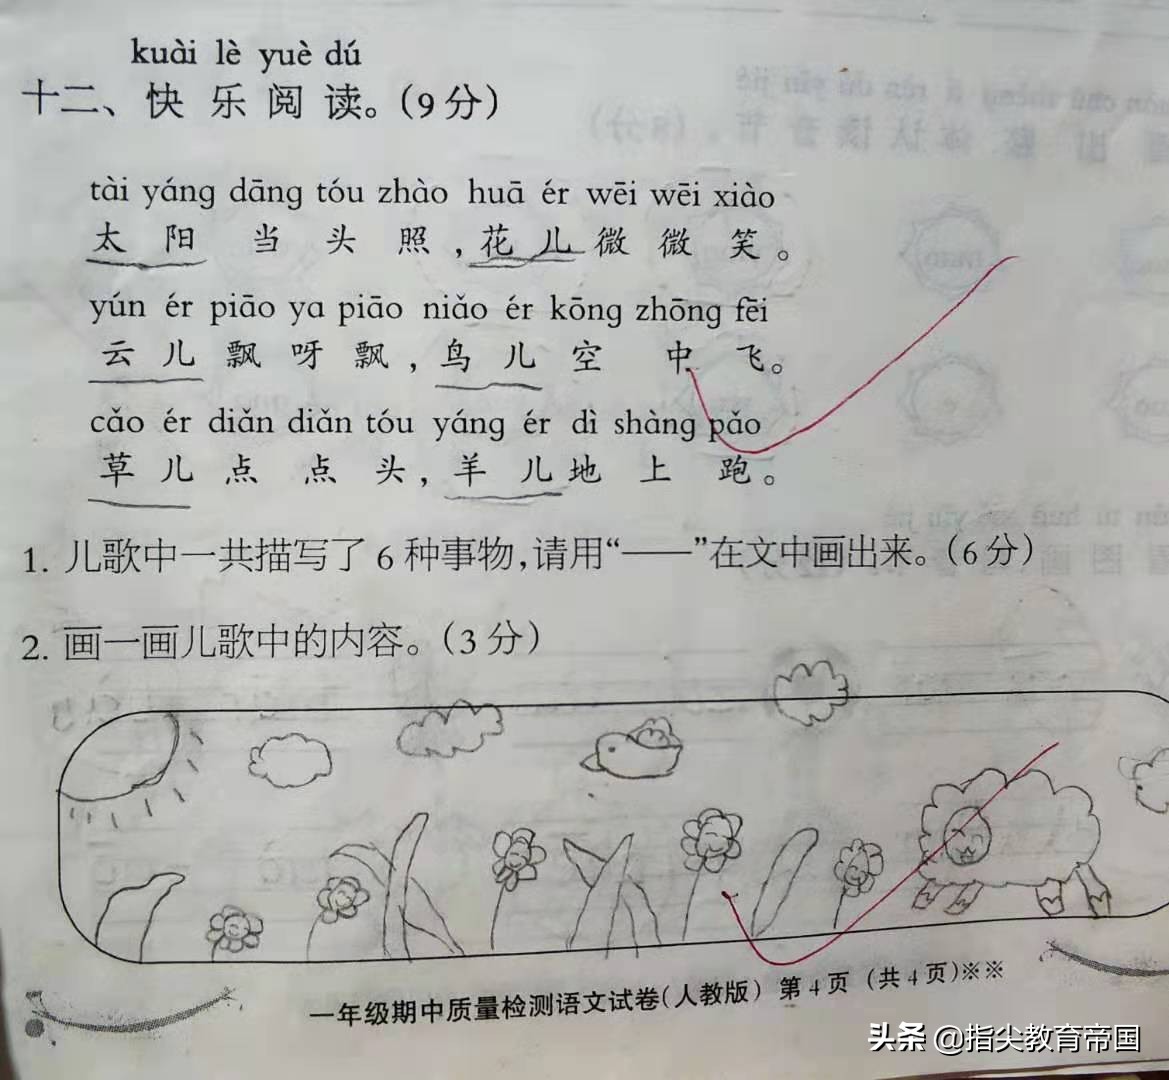 kuài lè yuè dú
十二、快乐阅读。(9分)
tài yáng dāng tóu zhào huā ér wēi wēi xiào
太阳当头照,花儿微微笑。
yún ér piāo ya piāo niǎo ér kōng zhōng fēi
云儿飘呀飘,鸟儿空中飞。
cǎo ér diǎn diǎn tóu yáng ér dì shàng pǎo
草儿点点头,羊儿地上跑。
1. 儿歌中一共描写了6种事物,请用“——”在文中画出来。(6分)
2. 画一画儿歌中的内容。(3分)
一年级期中质量检测语文试卷(人教版) 第4页 (共4页)※※
头条 @指尖教育帝国